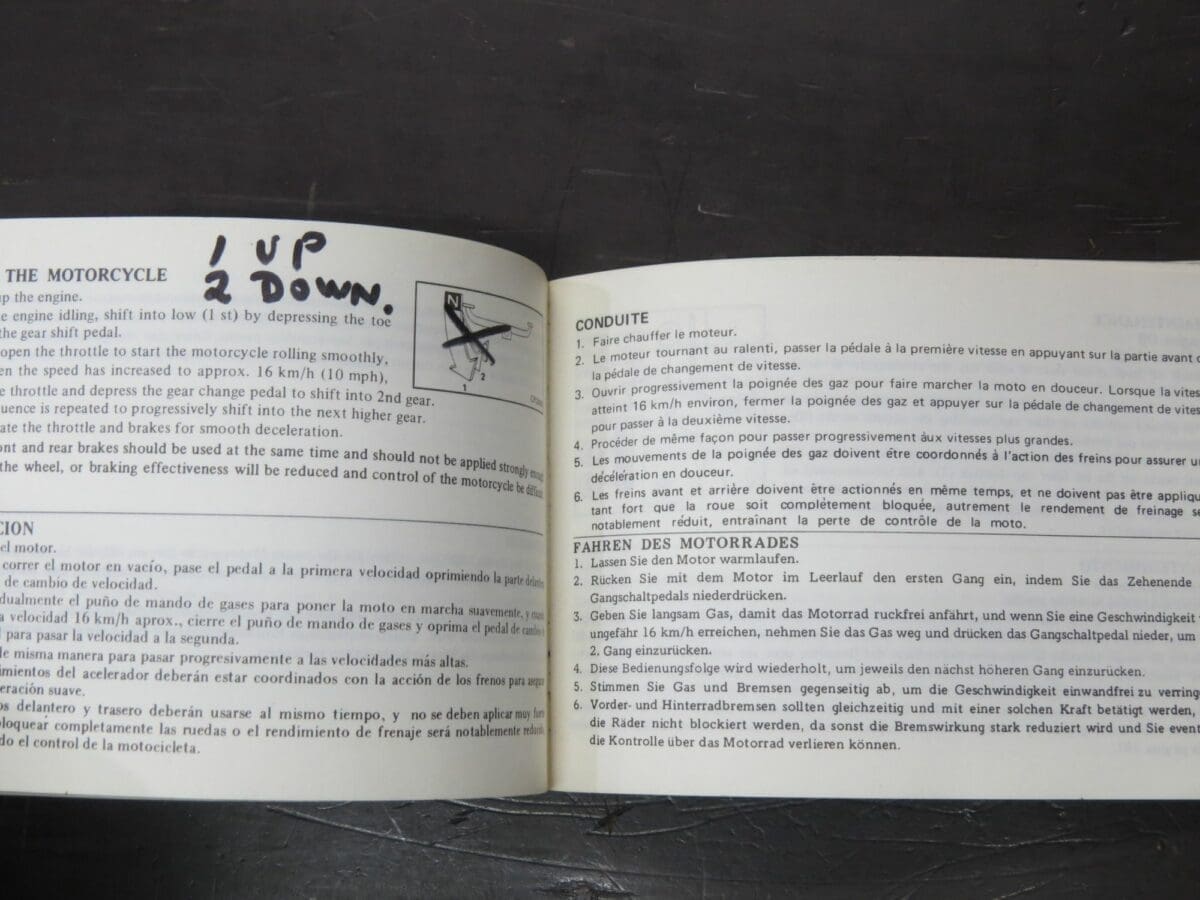 1 UP
2 DOWN.
THE MOTORCYCLE
up the engine.
engine idling, shift into low (1 st) by depressing the toe
the gear shift pedal.
open the throttle to start the motorcycle rolling smoothly,
the speed has increased to approx. 16 km/h (10 mph),
throttle and depress the gear change pedal to shift into 2nd gear.
is repeated to progressively shift into the next higher gear.
the throttle and brakes for smooth deceleration.
and rear brakes should be used at the same time and should not be applied strongly enough
the wheel, or braking effectiveness will be reduced and control of the motorcycle be difficult
N
1
2
el motor.
correr el motor en vacío, pase el pedal a la primera velocidad oprimiendo la parte delantera
de cambio de velocidad.
el puño de mando de gases para poner la moto en marcha suavemente, y cuando
velocidad 16 km/h aprox., cierre el puño de mando de gases y oprima el pedal de cambio
para pasar la velocidad a la segunda.
misma manera para pasar progresivamente a las velocidades más altas.
del acelerador deberán estar coordinados con la acción de los frenos para
suave.
delantero y trasero deberán usarse al mismo tiempo, y no se deben aplicar muy
completamente las ruedas o el rendimiento de frenaje será notablemente
el control de la motocicleta.
CONDUITE
1. Faire chauffer le moteur.
2. Le moteur tournant au ralenti, passer la pédale à la première vitesse en appuyant sur la partie avant
la pédale de changement de vitesse.
3. Ouvrir progressivement la poignée des gaz pour faire marcher la moto en douceur. Lorsque la
atteint 16 km/h environ, fermer la poignée des gaz et appuyer sur la pédale de changement de
pour passer à la deuxième vitesse.
4. Procéder de même façon pour passer progressivement àux vitesses plus grandes.
5. Les mouvements de la poignée des gaz doivent être coordonnés à l'action des freins pour assurer
décélération en douceur.
6. Les freins avant et arrière doivent être actionnés en même temps, et ne doivent pas être
tant fort que la roue soit complètement bloquée, autrement le rendement de freinage
notablement réduit, entraînant la perte de contrôle de la moto.
FAHREN DES MOTORRADES
1. Lassen Sie den Motor warmlaufen.
2. Rücken Sie mit dem Motor im Leerlauf den ersten Gang ein, indem Sie das Zehenende
Gangschaltpedals niederdrücken.
3. Geben Sie langsam Gas, damit das Motorrad ruckfrei anfährt, und wenn Sie eine Geschwindigkeit
ungefähr 16 km/h erreichen, nehmen Sie das Gas weg und drücken das Gangschaltpedal nieder, um
2. Gang einzurücken.
4. Diese Bedienungsfolge wird wiederholt, um jeweils den nächst höheren Gang einzurücken.
5. Stimmen Sie Gas und Bremsen gegenseitig ab, um die Geschwindigkeit einwandfrei zu
6. Vorder- und Hinterradbremsen sollten gleichzeitig und mit einer solchen Kraft betätigt werden,
die Räder nicht blockiert werden, da sonst die Bremswirkung stark reduziert wird und Sie
die Kontrolle über das Motorrad verlieren können.